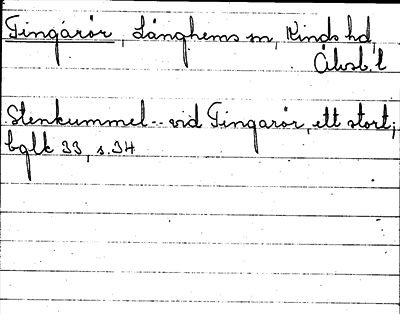 Tingarör, Långhems sn, Kinds hd,
Älvsb. l
Stenkummel -- vid Tingarör, ett stort;
bglk 33, s. 34